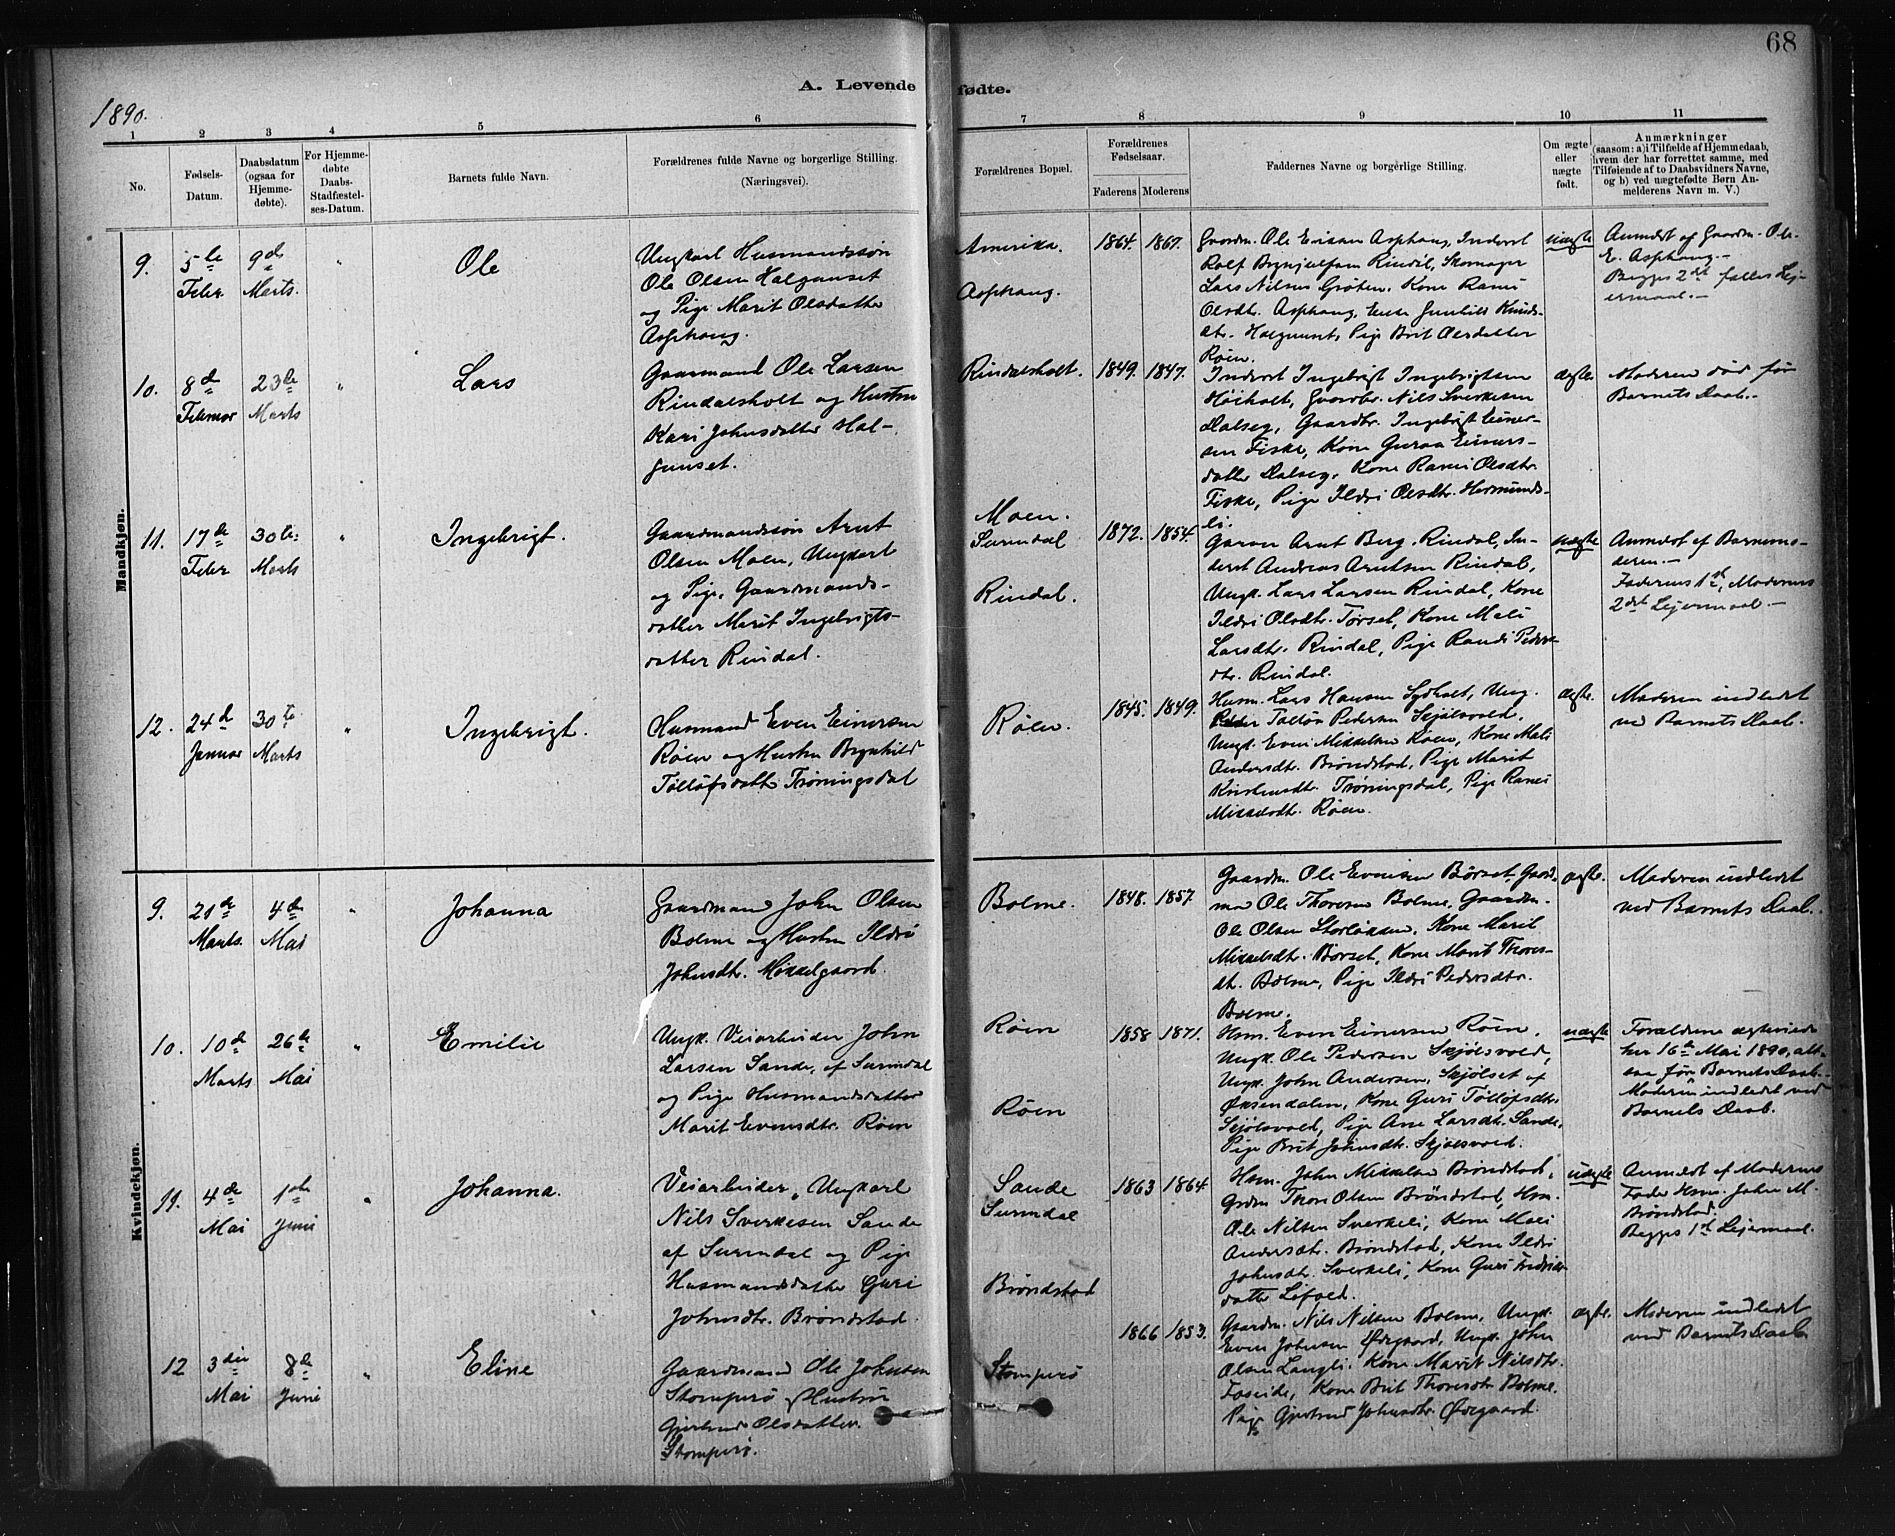 68
A. Levende fødte.
1890.
1 2 3 4 5 6 7 8 9 10 11
No.
Fødsels-
Datum.
Daabsdatum
(ogsaa for
Hjemme-
døbte).
For Hjemme-
døbte
Daabs-
Stadfæstel-
ses-Datum.
Barnets fulde Navn.
Forældrenes fulde Navne og borgerlige Stilling.
(Næringsvei).
Forældrenes Bopæl.
Forældrenes
Fødselsaar.
Faderens Moderens
Faddernes Navne og borgerlige Stilling.
Om ægte
eller
uægte
født.
Anmærkninger
(saasom: a) i Tilfælde af Hjemmedaab,
hvem der har forrettet samme, med
Tilføiende af to Daabsvidners Navne,
og b) ved uægtefødte Børn An-
melderens Navn m. V.)
Mandkjøn.
9.
5te
Febr.
9de
Marts.
"
Ole
Ungkarl Husmandssøn
Ole Olsen Halgunset
og Pige Marit Olsdatter
Asphaug.
Amerika.
Asphaug.
1864. 1867.
Gaardm. Ole Ericsen Asphaug, Inderst
Rolf Brynjulfsen Rindal, Skomager
Lars Nilsen Grøten, Kone Randi
Olsdtr. Asphaug, Enke Gunhild Knuds-
dtr. Halgunset, Pige Brit Olsdatter
Røen.
uægte
Anmeldt af Gaardm. Ole
E. Asphaug.-
Begges 2det fælles Lej-
ermaal.-
10.
8de
Februar
23de
Marts
"
Lars
Gaarmand Ole Larsen
Rindalsholt og Hustru
Kari Johnsdatter Hal-
gunset.
Rindalsholt.
1849. 1847.
Inderst Ingebrigt Ingebrigtsen
Høiholt, Gaardbr. Nils Sverkesen
Dalseg, Gaardbr. Ingebrigt Einer-
sen Fiske, Kone Guraa Einers-
datter Dalseg, Kone Randi Olsdtr.
Fiske, Pige Ildri Olsdtr. Hermunds-
li.
ægte.
Moderen død før
Barnets Daab.-
11.
17de
Febr
30te
Marts
"
Ingebrigt.
Gaardmandssøn Arnt
Olsen Moen, Ungkarl
og Pige, Gaardmands-
datter Marit Ingebrigts-
datter Rindal.
Moen.
Surendal
Rindal.
1872. 1854.
Garver Arnt Berg. Rindal, In-
derst Andreas Arntsen Rindal,
Ungk. Lars Larsen Rindal, Kone
Ildri Olsdtr. Tørset, Kone Mali
Larsdtr. Rindal, Pige Randi Peders-
dtr. Rindal.
uægte
Anmeldt af Barnemo-
deren.-
Faderens 1st, Moderens
2det Lejermaal.-
12.
24de
Januar
30te
Marts
"
Ingebrigt.
Husmand Even Einersen
Røen og Hustru Brynhild
Tølløfsdatt. Trøningsdal
Røen.
1845. 1849.
Husm. Lars Hansen Sydholt, Ung.
Tølløv Pedersen Skjølsvold,
Ungk. Even Mikkelsen Røen, Kone Mali
Andersdtr. Brøndstad, Pige Marit
Kristensdtr. Trøningsdal, Pige Randi
Mikkelsdtr. Røen.
ægte.
Moderen indledet
ved Barnets Daab.
Kvindekjøn.
9.
21de
Marts.
4de
Mai
"
Johanna
Gaardmand John Olsen
Bolme og Hustru Ildri
Johnsdtr. Mikkelgaard.
Bolme.
1848. 1857.
Gaardm. Ole Evensen Børset, Gaard-
mand Ole Thoresen Bolme, Gaardm.
Ole Olsen Storløkken, Kone Marit
Mikkelsdtr. Børset, Kone Marit Thores-
dtr. Bolme, Pige Ildri Pedersdtr.
Bolme.
ægte.
Moderen indledet
ved Barnets Daab.
10.
10de
Marts
26de
Mai
"
Emilie
Ungk. Veiarbeider John
Larsen Sande, af Surendal
og Pige Husmandsdatter
Marit Evensdtr. Røen
Røen
Røen
1858 1871.
Hsm. Even Einersen Røen,
Ungk. Ole Pedersen Skjølsvold,
Ungk. John Andersen, Skjølset af
Øksendalen, Kone Guri Tølløfsdtr.
Skjølsvold, Pige Ane Larsdtr. Sande,
Pige Brit Johnsdtr. Skjølsvold.
uægte
Forældrene ægteviede
her 16de Mai 1890, alt-
saa før Barnets Daab.
Moderen indledet ved
Barnets Daab.
11.
4de
Mai
1ste
Juni
"
Johanna.
Veiarbeider, Ungkarl
Nils Sverkesen Sande
af Surendal og Pige
Husmandsdatter Guri
Johnsdtr. Brøndstad.
Sande
Surendal
Brøndstad
1863 1864
Hsm. John Mikkelsen Brøndstad,
Grdm. Thore Olsen Brøndstad, Hsm.
Ole Nilsen Sverkeli, Kone Mali
Andersdtr. Brøndstad, Kone Ildri
Johnsdtr. Sverkeli, Kone Guri
datter
uægte
Anmeldt af Moderens
Fader Hsm. John M.
Brøndstad.
Begges 1st Lejermaal.
12
3die
Mai
8de
Juni
"
Eline
Gaardmand Ole Johnsen
Stomperø & Hustru
Gjertrud Olsdatter
Stomperø.
Stomperø
1866 1853.
Gaardm. Nils Nilsen Bolme, Ungk.
Even Johnsen Ødegaard, Ungk. John
Olsen Langli. Kone Marit Nilsdtr.
Foseide, Kone Brit Thoresdtr Bolme.
Pige Gjertrud Johnsdtr. Ødegaard.
ægte.
Moderen indledet
ved Barnets Daab